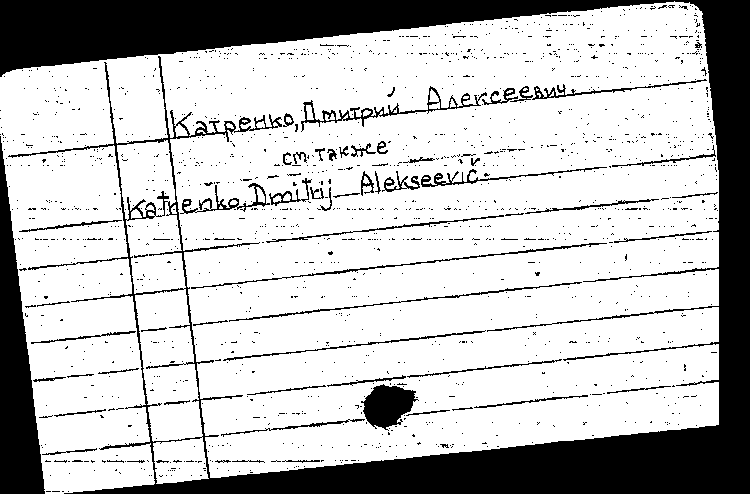 Катренко, Дмитрий Алексеевич.
см. также
Katrenko, Dmitrij Alekseevič.